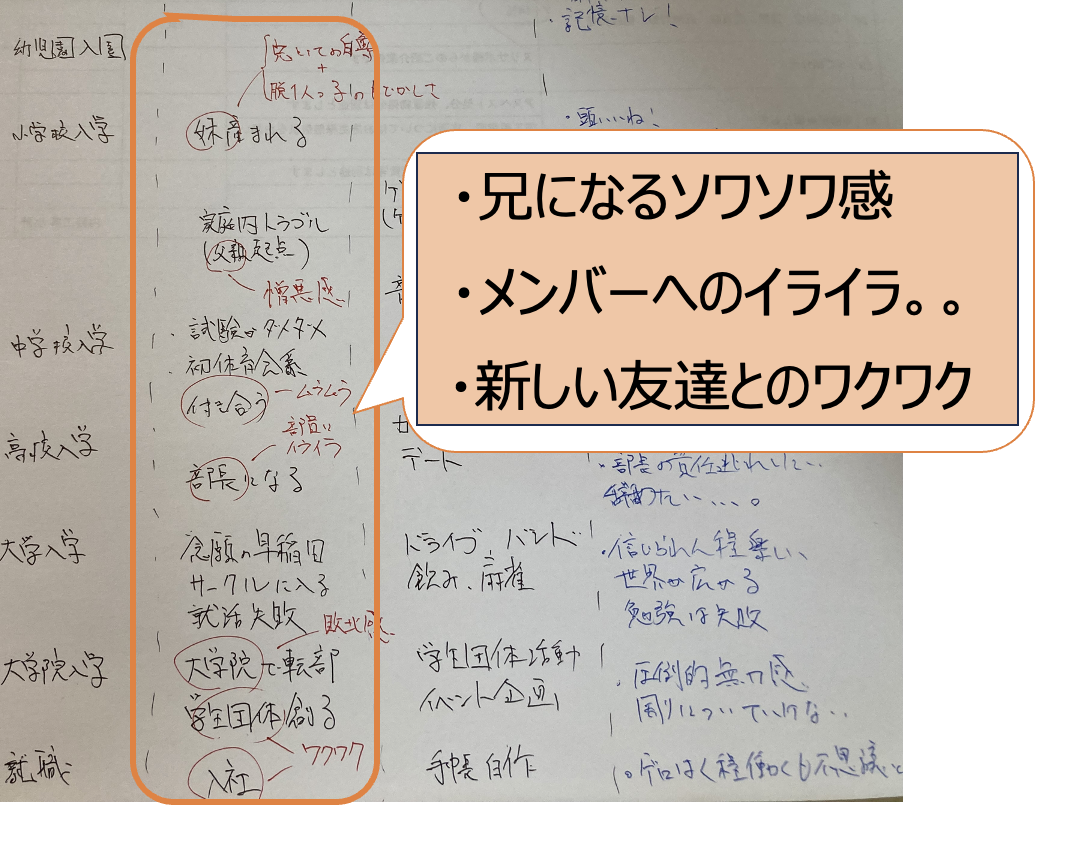 ・記憶ナシ！
幼児園入園
兄としての自尊
＋
脱1人っ子のもどかしさ
小学校入学
妹産まれる
・頭いいね！
・兄になるソワソワ感
・メンバーへのイライラ。。
・新しい友達とのワクワク
家庭内トラブル
（父親起点）
憎悪感
中学校入学
・試験はダメダメ
・初体育会系
付き合う
ームラムラ
高校入学
部員に
イライラ
部長になる
デート
・部長の責任逃れしていて、
辞めたい、、、、。
大学入学
念願の早稲田
サークルに入る
就活失敗
ドライブ、バンド、
飲み、麻雀
・信じられん程楽しい、
世界が広がる
勉強は失敗
敗北感
大学院入学
大学院で転部
学生団体創る
学生団体活動
イベント企画
・圧倒的無力感、
周りについていけない、、
就職
入社
ワクワク
手帳自作
。ゲロはく程働くも不思議と